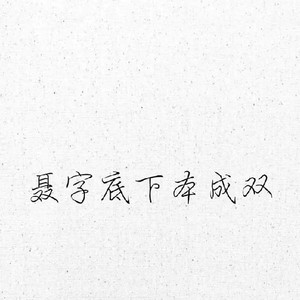 聂字底下本成双